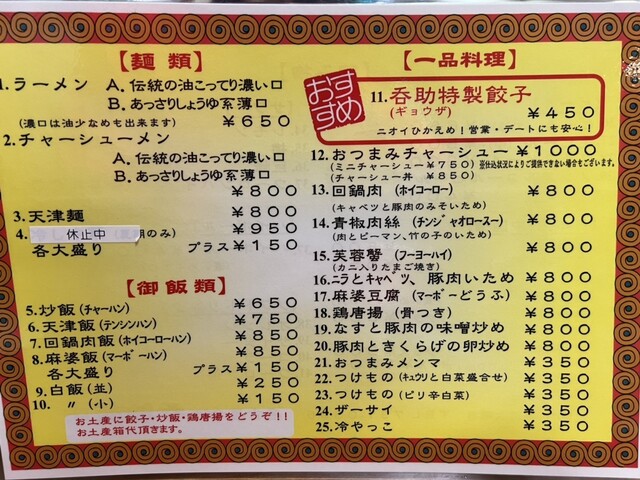 【麺類】
1.ラーメン A.伝統の油こってり濃い口
B.あっさりしょうゆ系薄口
(濃口は油少なめも出来ます) ¥650
2.チャーシューメン
A.伝統の油こってり濃い口
B.あっさりしょうゆ系薄口
¥800
3.天津麺 ¥800
4. 休止中 のみ) ¥950
各大盛り プラス¥150
【御飯類】
5.炒飯(チャーハン) ¥650
6.天津飯(テンシンハン) ¥750
7.回鍋肉飯(ホイコーローハン) ¥850
8.麻婆飯(マーボーハン) ¥850
各大盛り プラス¥150
9.白飯(並) ¥250
10. 〃 (小) ¥150
お土産に餃子・炒飯・鶏唐揚をどうぞ!!
お土産箱代頂きます。
【一品料理】
おすすめ
11.呑助特製餃子
(ギョウザ) ¥450
ニオイひかえめ!営業・デートにも安心!
12.おつまみチャーシュー ¥1000
(ミニチャーシュー¥750) ※仕込状況によりご提供できない場合もございます。
(チャーシュー丼 ¥850)
13.回鍋肉(ホイコーロー) ¥800
(キャベツと豚肉のみそいため)
14.青椒肉絲(チンジャオロースー) ¥800
(肉とピーマン、竹の子のいため)
15.芙蓉蟹(フーヨーハイ) ¥800
(カニ入りたまご焼き)
16.ニラとキャベツ、豚肉いため ¥800
17.麻婆豆腐(マーボーどうふ) ¥800
18.鶏唐揚(骨つき) ¥800
19.なすと豚肉の味噌炒め ¥800
20.豚肉ときくらげの卵炒め ¥800
21.おつまみメンマ ¥350
22.つけもの(キュウリと白菜盛合せ) ¥350
23.つけもの(ピリ辛白菜) ¥350
24.ザーサイ ¥350
25.冷やっこ ¥350